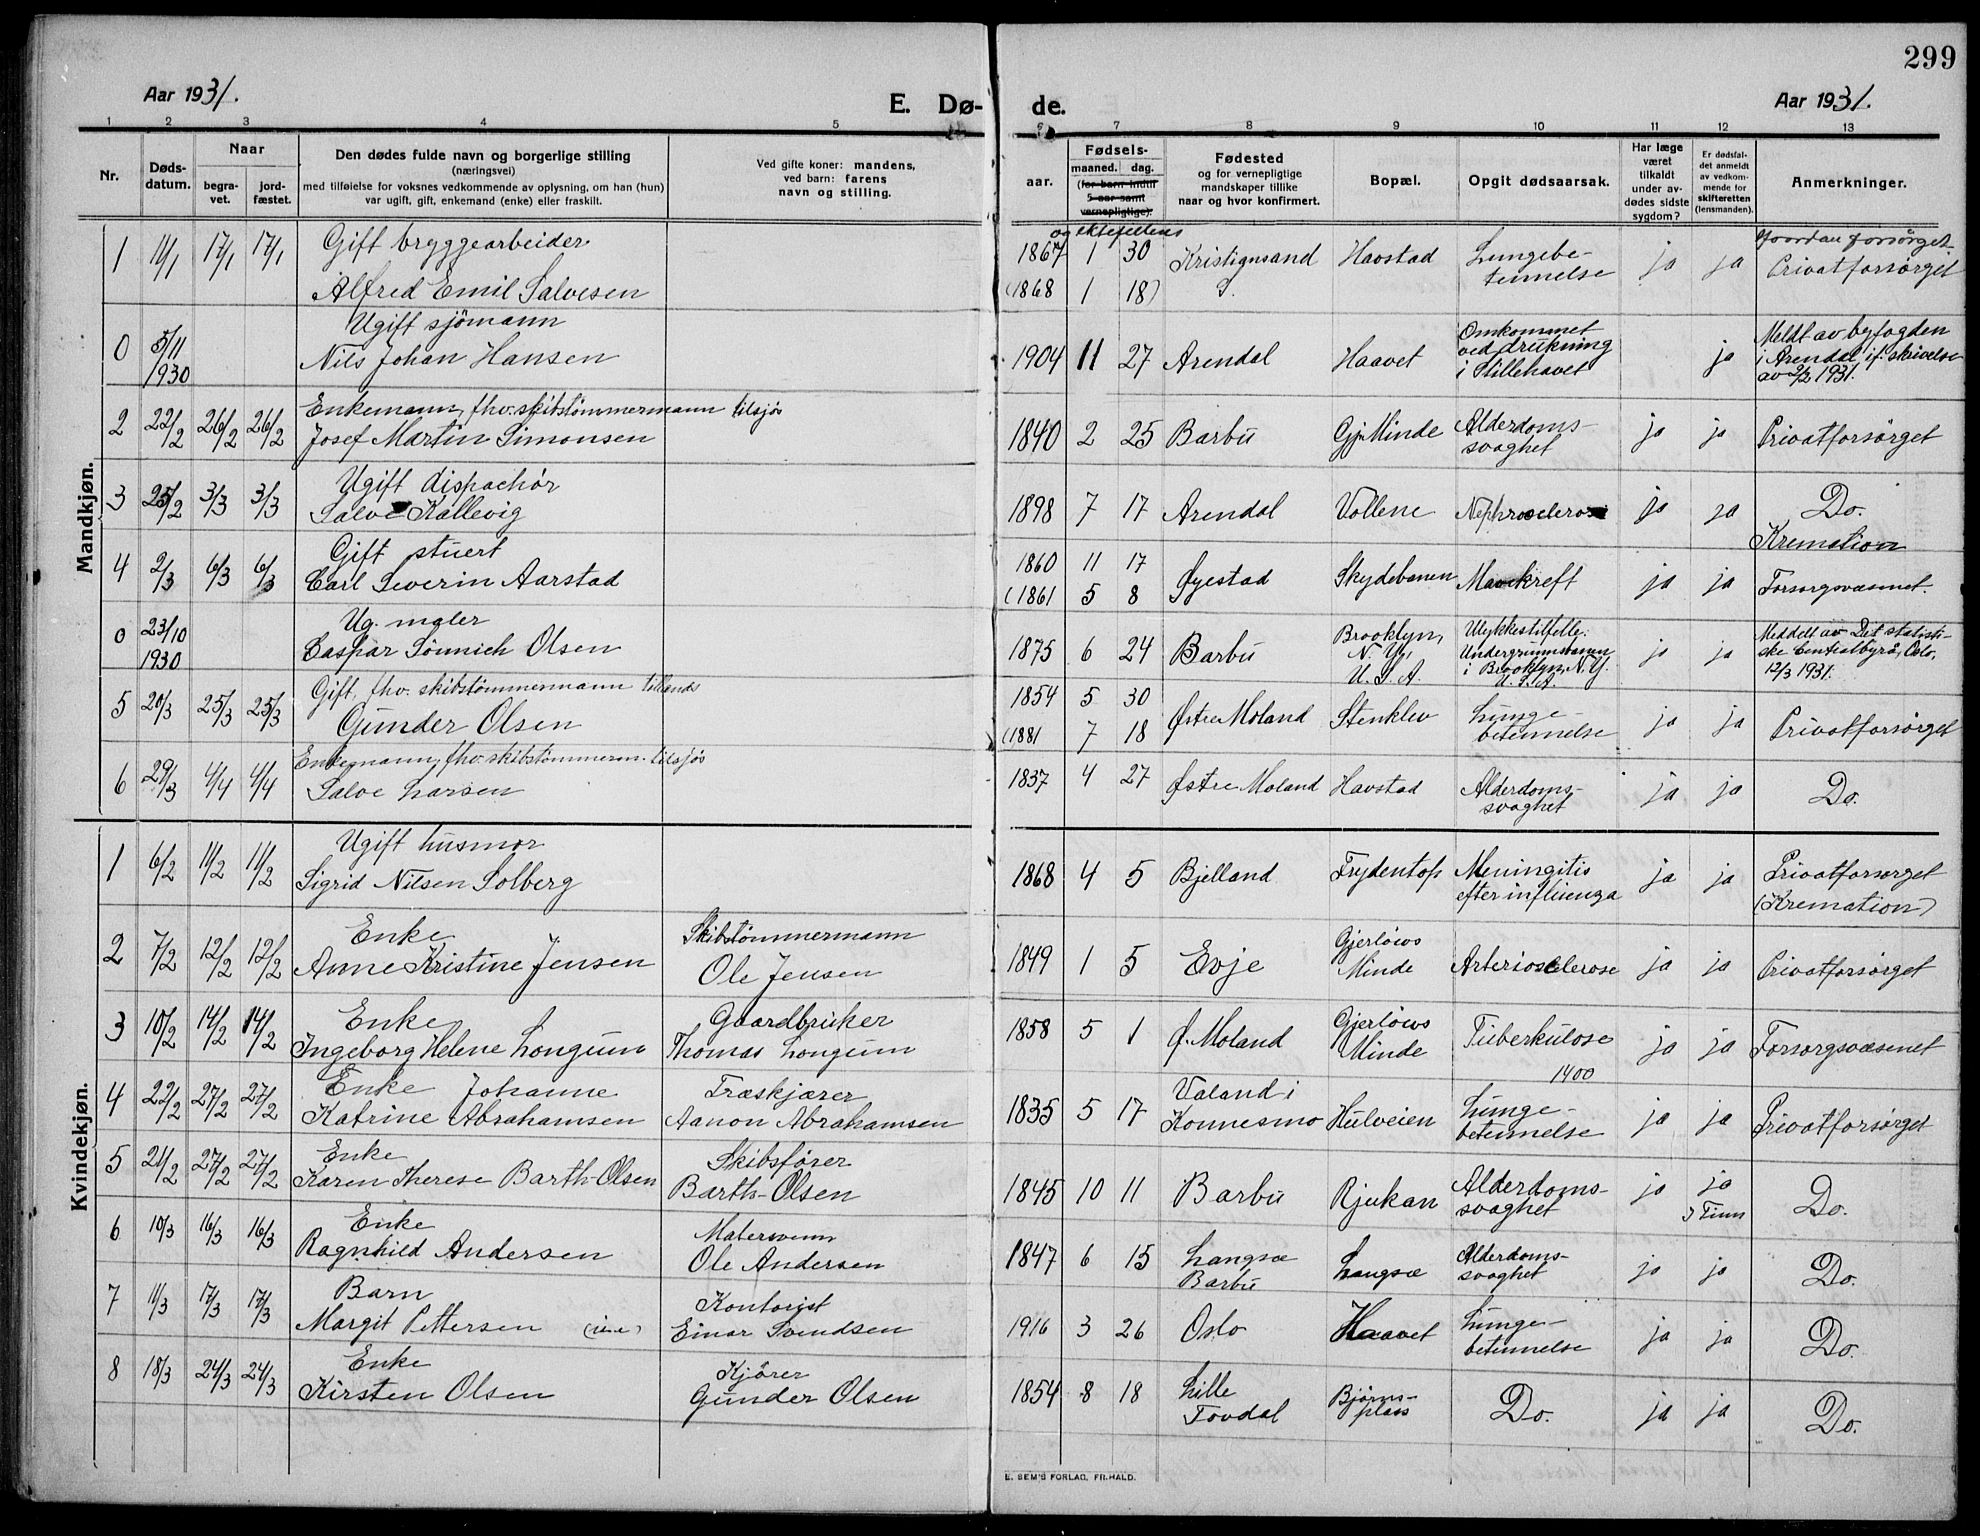 299
Aar 1931.
E. Dø- de.
Aar 1931.
1 2 3 4 5 6 7 8 9 10 11 12 13
Nr.
Døds-
datum.
Naar
begra-
vet.
jord-
fæstet.
Den dødes fulde navn og borgerlige stilling
(næringsvei)
med tilføielse for voksnes vedkommende av oplysning, om han (hun)
var ugift, gift, enkemand (enke) eller fraskilt.
Ved gifte koner: mandens,
ved barn: farens
navn og stilling.
aar.
Fødsels-
maaned. dag.
(for barn indtil
5 aar samt
vernepligtige).
og ektefellens
Fødested
og for vernepligtige
mandskaper tillike
naar og hvor konfirmert.
Bopæl.
Opgit dødsaarsak.
Har læge
været
tilkaldt
under av-
dødes sidste
sygdom?
Er dødsfal-
det anmeldt
av vedkom-
mende for
skifteretten
(lensmanden).
Anmerkninger.
Hvordan forsørget
Mandkjøn.
1 11/1 17/1 17/1 Gift bryggearbeider
Alfred Emil Salvesen
1867 1 30 Kristiansand Havstad Lungebe- ja ja Privatforsørget
(1868 1 18) S. tennelse
0 5/11 Ugift sjömann
1930 Nils Johan Hansen
1904 11 27 Arendal Haavet Omkommet
ved drukning
i Stillehavet
ja Meldt av byfogden
i Arendal if. skrivelse
av 2/2 1931.
2 22/2 26/2 26/2 Enkemann, fhv. skibstömmermann tilsjøs
Josef Martin Simonsen
1840 2 25 Barbu Gj. Minde Alderdoms-
svaghet
ja ja Privatforsörget
3 25/2 3/3 3/3 Ugift dispachör
Salve Kallevig
1898 7 17 Arendal Vollene Nephrosclerose ja ja Do.
Kremation
4 2/3 6/3 6/3 Gift stuert
Carl Severin Aarstad
1860 11 17
(1861 5 8
Øyestad Skydebanen Mavekreft ja ja Forsorgsvæsenet.
0 23/10 Ug. maler
1930 Caspar Sönnich Olsen
1875 6 24 Barbu Brooklyn,
N. Y.,
U. S. A.
Ulykkestilfelle.
Undergrunnsbanen
i Brooklyn, N.Y.
U. S. A.
ja ja Meddelt av Det statisti-
ske Centralbyrå, Oslo,
12/3 1931.
5 20/3 25/3 25/3 Gift, fhv. skibstömmermann tillands
Gunder Olsen
1854 5 30
(1881 7 18
Østre Moland Stenklev Lunge-
betennelse
ja ja Privatforsörget
6 29/3 4/4 4/4 Enkemann, fhv. skibstömmerm. tilsjøs
Salve Larsen
1837 4 27 Østre Moland Havstad Alderdoms-
svaghet
ja ja Do.
Kvindekjøn.
1 6/2 11/2 11/2 Ugift husmor
Sigrid Nilsen Solberg
1868 4 5 Bjelland Frydentop Meningitis
efter influenza
ja ja Privatforsørget
(Kremation)
2 7/2 12/2 12/2 Enke
Anne Kristine Jensen
Skibstömmermann
Ole Jensen
1849 1 5 Evje Gjerlöws
Minde
Arteriosclerose ja ja Privatforsörget
3 10/2 14/2 14/2 Enke
Ingeborg Helene Longum
Gaardbruker
Thomas Longum
1858 5 1 Ø. Moland Gjerlöws
Minde
Tuberkulose
1400
ja ja Forsorgsvæsenet
4 22/2 27/2 27/2 Enke Johanne
Katrine Abrahamsen
Træskjærer
Aanon Abrahamsen
1835 5 17 Valand i
Konnesmo
Hulveien Lunge-
betennelse
ja ja Privatforsørget
5 21/2 27/2 27/2 Enke
Karen Therese Barth-Olsen
Skibsfører
Barth-Olsen
1845 10 11 Barbu Rjukan Alderdoms-
svaghet
ja ja
i Tinn
Do.
6 10/3 16/3 16/3 Enke
Ragnhild Andersen
Malersvenn
Ole Andersen
1847 6 15 Langsæ
Barbu
Langsæ Alderdoms-
svaghet
ja ja Do.
7 11/3 17/3 17/3 Barn
Margit Pettersen
Kontorist
Einar Svendsen
1916 3 26 Oslo Haavet Lunge-
betennelse
ja ja Do.
8 18/3 24/3 24/3 Enke
Kirsten Olsen
Kjörer
Gunder Olsen
1854 8 18 Lille
Tovdal
Bjørns-
plass
Do. ja ja Do.
E. SEM'S FORLAG, FR.HALD.